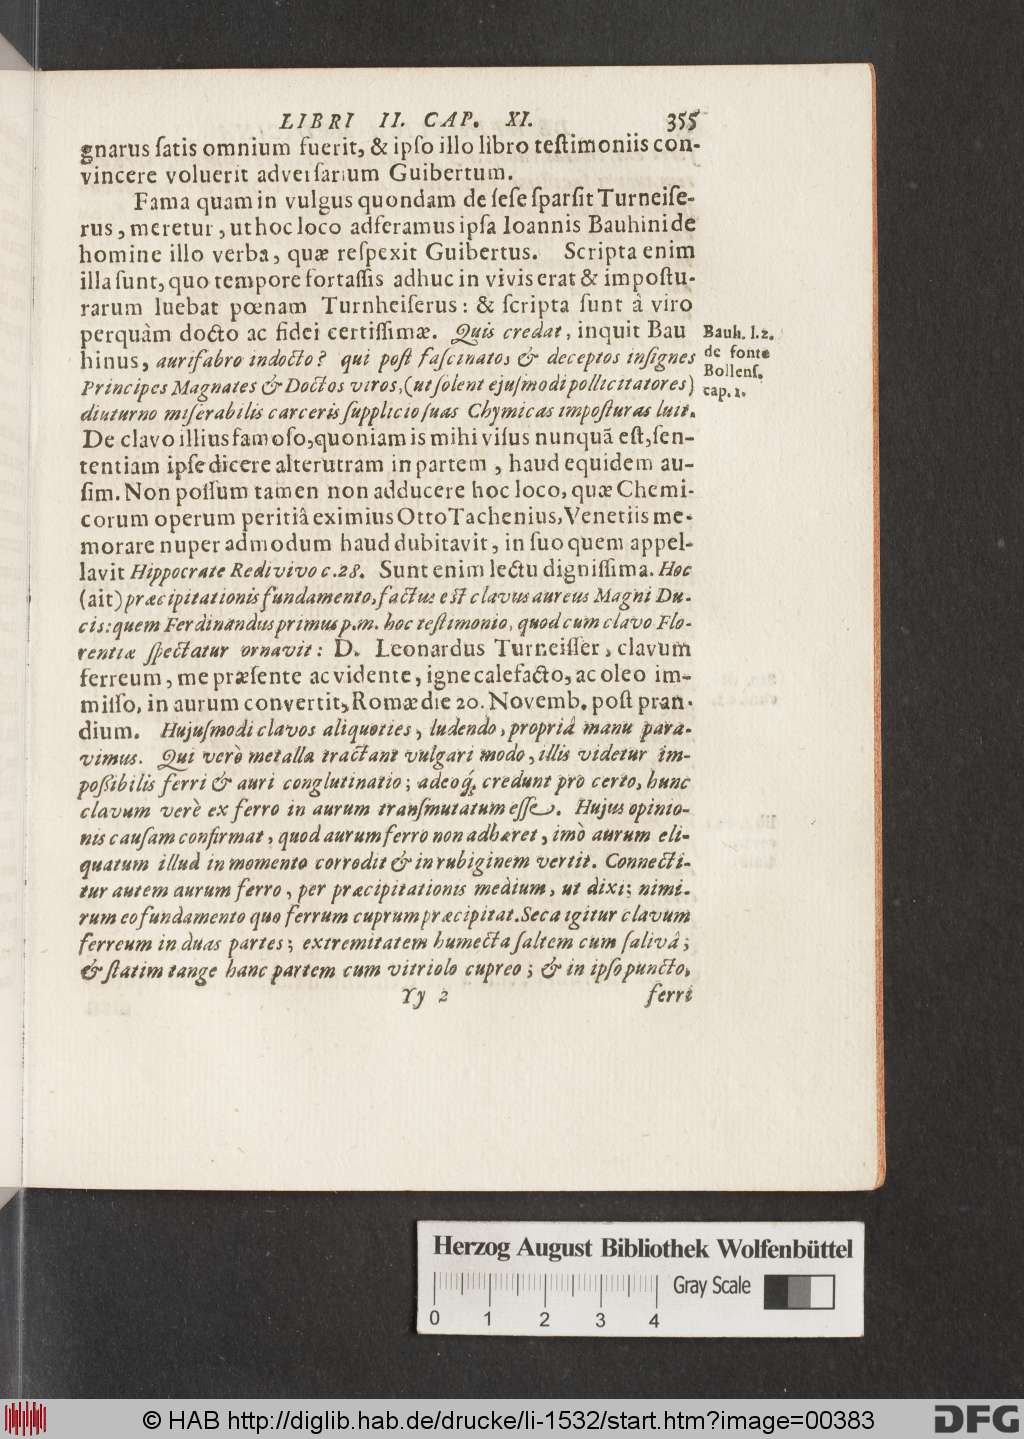 LIBRI II. CAP. XI. 355
gnarus ſatis omnium fuerit, & ipſo illo libro teſtimoniis con-
vincere voluerit adverſarium Guibertum.
Fama quam in vulgus quondam de ſeſe ſparſit Turneiſe-
rus, meretur, ut hoc loco adferamus ipſa Ioannis Bauhini de
homine illo verba, quæ reſpexit Guibertus. Scripta enim
illa ſunt, quo tempore fortaſſis adhuc in vivis erat & impoſtu-
rarum luebat pœnam Turnheiſerus: & ſcripta ſunt â viro
perquàm docto ac fidei certiſſimæ. Quis credat, inquit Bau
hinus, aurifabro indocto? qui poſt faſcinatos & deceptos inſignes
Principes Magnates & Doctos viros, (ut ſolent ejuſmodi pollicitatores)
diuturno miſerabilis carceris ſupplicio ſuas Chymicas impoſturas luit.
Bauh. l.2.
de fonte
Bollenſ.
cap. 1.
De clavo illius famoſo, quoniam is mihi viſus nunquã eſt, ſen-
tentiam ipſe dicere alterutram in partem, haud equidem au-
ſim. Non poſſum tamen non adducere hoc loco, quæ Chemi-
corum operum peritiâ eximius Otto Tachenius, Venetiis me-
morare nuper admodum haud dubitavit, in ſuo quem appel-
lavit Hippocrate Redivivo c. 28. Sunt enim lectu digniſſima. Hoc
(ait) præcipitationis fundamento, factus eſt clavus aureus Magni Du-
cis: quem Ferdinandus primus p. m. hoc teſtimonio, quod cum clavo Flo-
rentiæ ſpectatur ornavit: D. Leonardus Turneiſſer, clavum
ferreum, me præſente ac vidente, igne calefacto, ac oleo im-
miſſo, in aurum convertit, Romæ die 20. Novemb. poſt pran-
dium. Hujuſmodi clavos aliquoties, ludendo, propriâ manu para-
vimus. Qui verò metalla tractant vulgari modo, illis videtur im-
poſſibilis ferri & auri conglutinatio; adeoq́; credunt pro certo, hunc
clavum verè ex ferro in aurum tranſmutatum eſſe. Hujus opinio-
nis cauſam confirmat, quod aurum ferro non adhæret, imò aurum eli-
quatum illud in momento corrodit & in rubiginem vertit. Connecti-
tur autem aurum ferro, per præcipitationis medium, ut dixi; nimi-
rum eo fundamento quo ferrum cuprum præcipitat. Seca igitur clavum
ferreum in duas partes; extremitatem humecta ſaltem cum ſalivâ;
& ſtatim tange hanc partem cum vitriolo cupreo; & in ipſo puncto,
Yy 2 ferri
Herzog August Bibliothek Wolfenbüttel
Gray Scale
0 1 2 3 4
© HAB http://diglib.hab.de/drucke/li-1532/start.htm?image=00383
DFG